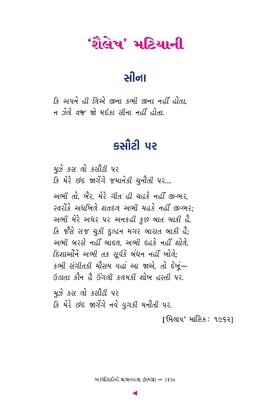 ‘શૈલેષ’ મટિયાની
સીના
કિ અપને હી લિએ જીના કભી જીના નહીં હોતા,
ન ઝેલે વજ્ર જો મર્દકા સીના નહીં હોતા.
કસૌટી પર
મુઝે કસ લો કસૌટી પર
કિ મેરે છંદ જાગેંગે જમાનેકી ચુનૌતી પર...
અભી તો, ખૈર, મેરે ગીત હી ચહકે નહીં જી-ભર,
સ્વરોંકે અધખિલે શતદલ અભી મહકે નહીં જી-ભર;
અભી મેરે અધર પર અનકહી કુછ બાત બાકી હૈ,
કિ જૈસે સજ ચુકી દુલ્હન મગર બારાત બાકી હૈ;
અભી બરસે નહીં બાદલ, અભી દહકે નહીં શોલે,
દિશાઓંને અભી તક સૂર્યકે બંધન નહીં ખોલે;
કભી સંગીતકી મૌસમ યહાં આ જાએ, તો દેખું—
ઉઠાતા કૌન હૈ ઉંગલી કલમકી શોખ હસ્તી પર.
મુઝે કસ લો કસૌટી પર
કિ મેરે છંદ જાગેંગે નયે યુગકી મનૌતી પર.
[‘મિલાપ’ માસિક: ૧૯૬૨]
અરધી સદીની વાચનયાત્રા (સમગ્ર) — 3134